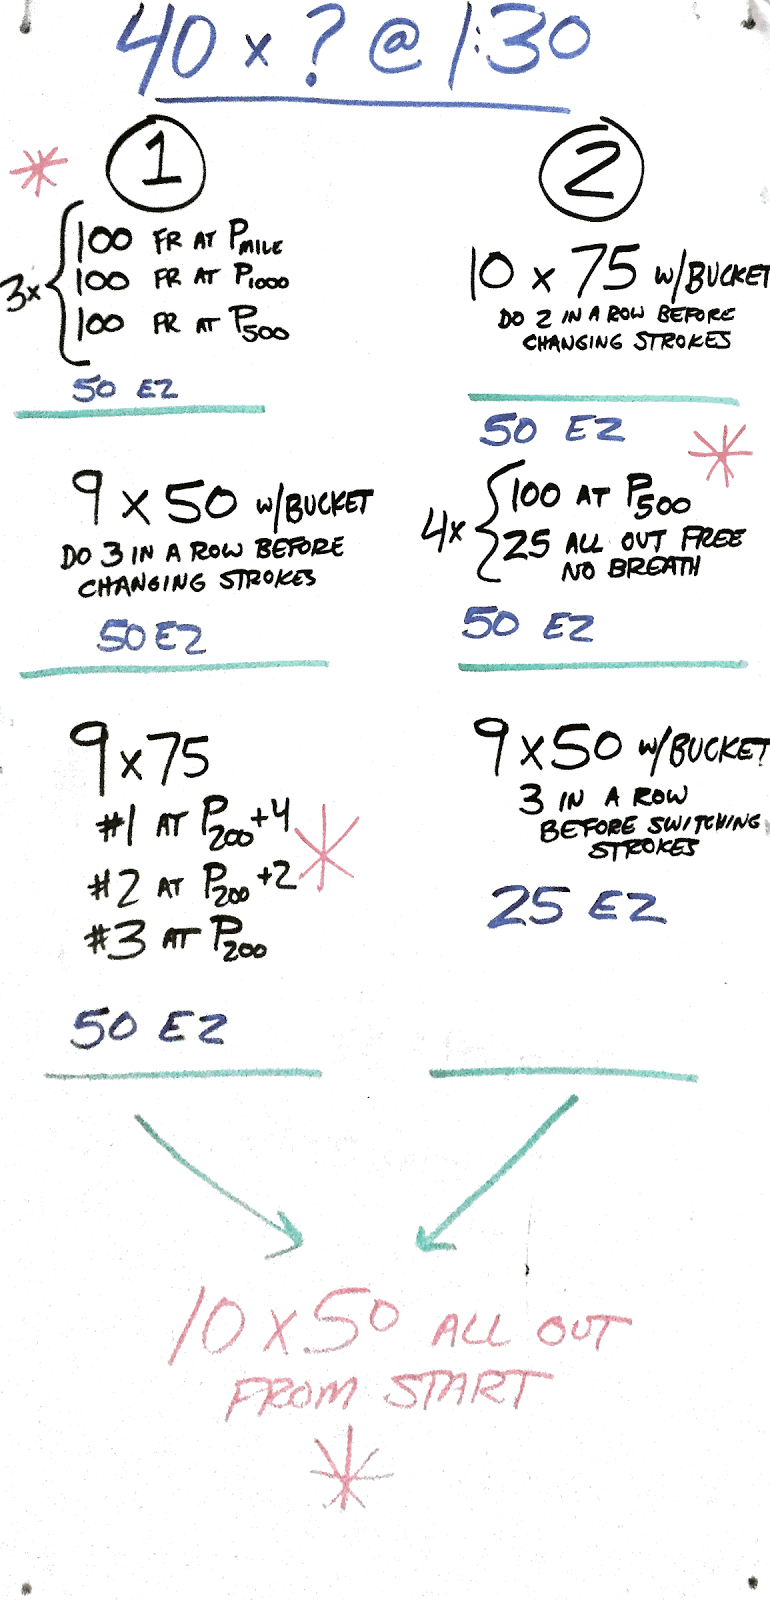 40 x ? @ 1:30
1
3x
100 FR AT PMILE
100 FR AT P1000
100 FR AT P500
50 EZ
9 x 50 w/BUCKET
DO 3 IN A ROW BEFORE
CHANGING STROKES
50 EZ
9 x 75
#1 AT P200+4
#2 AT P200+2
#3 AT P200
50 EZ
2
10 x 75 w/BUCKET
DO 2 IN A ROW BEFORE
CHANGING STROKES
50 EZ
4x
100 AT P500
25 ALL OUT FREE
NO BREATH
50 EZ
9 x 50 w/BUCKET
3 IN A ROW
BEFORE SWITCHING
STROKES
25 EZ
10 x 50 ALL OUT
FROM START